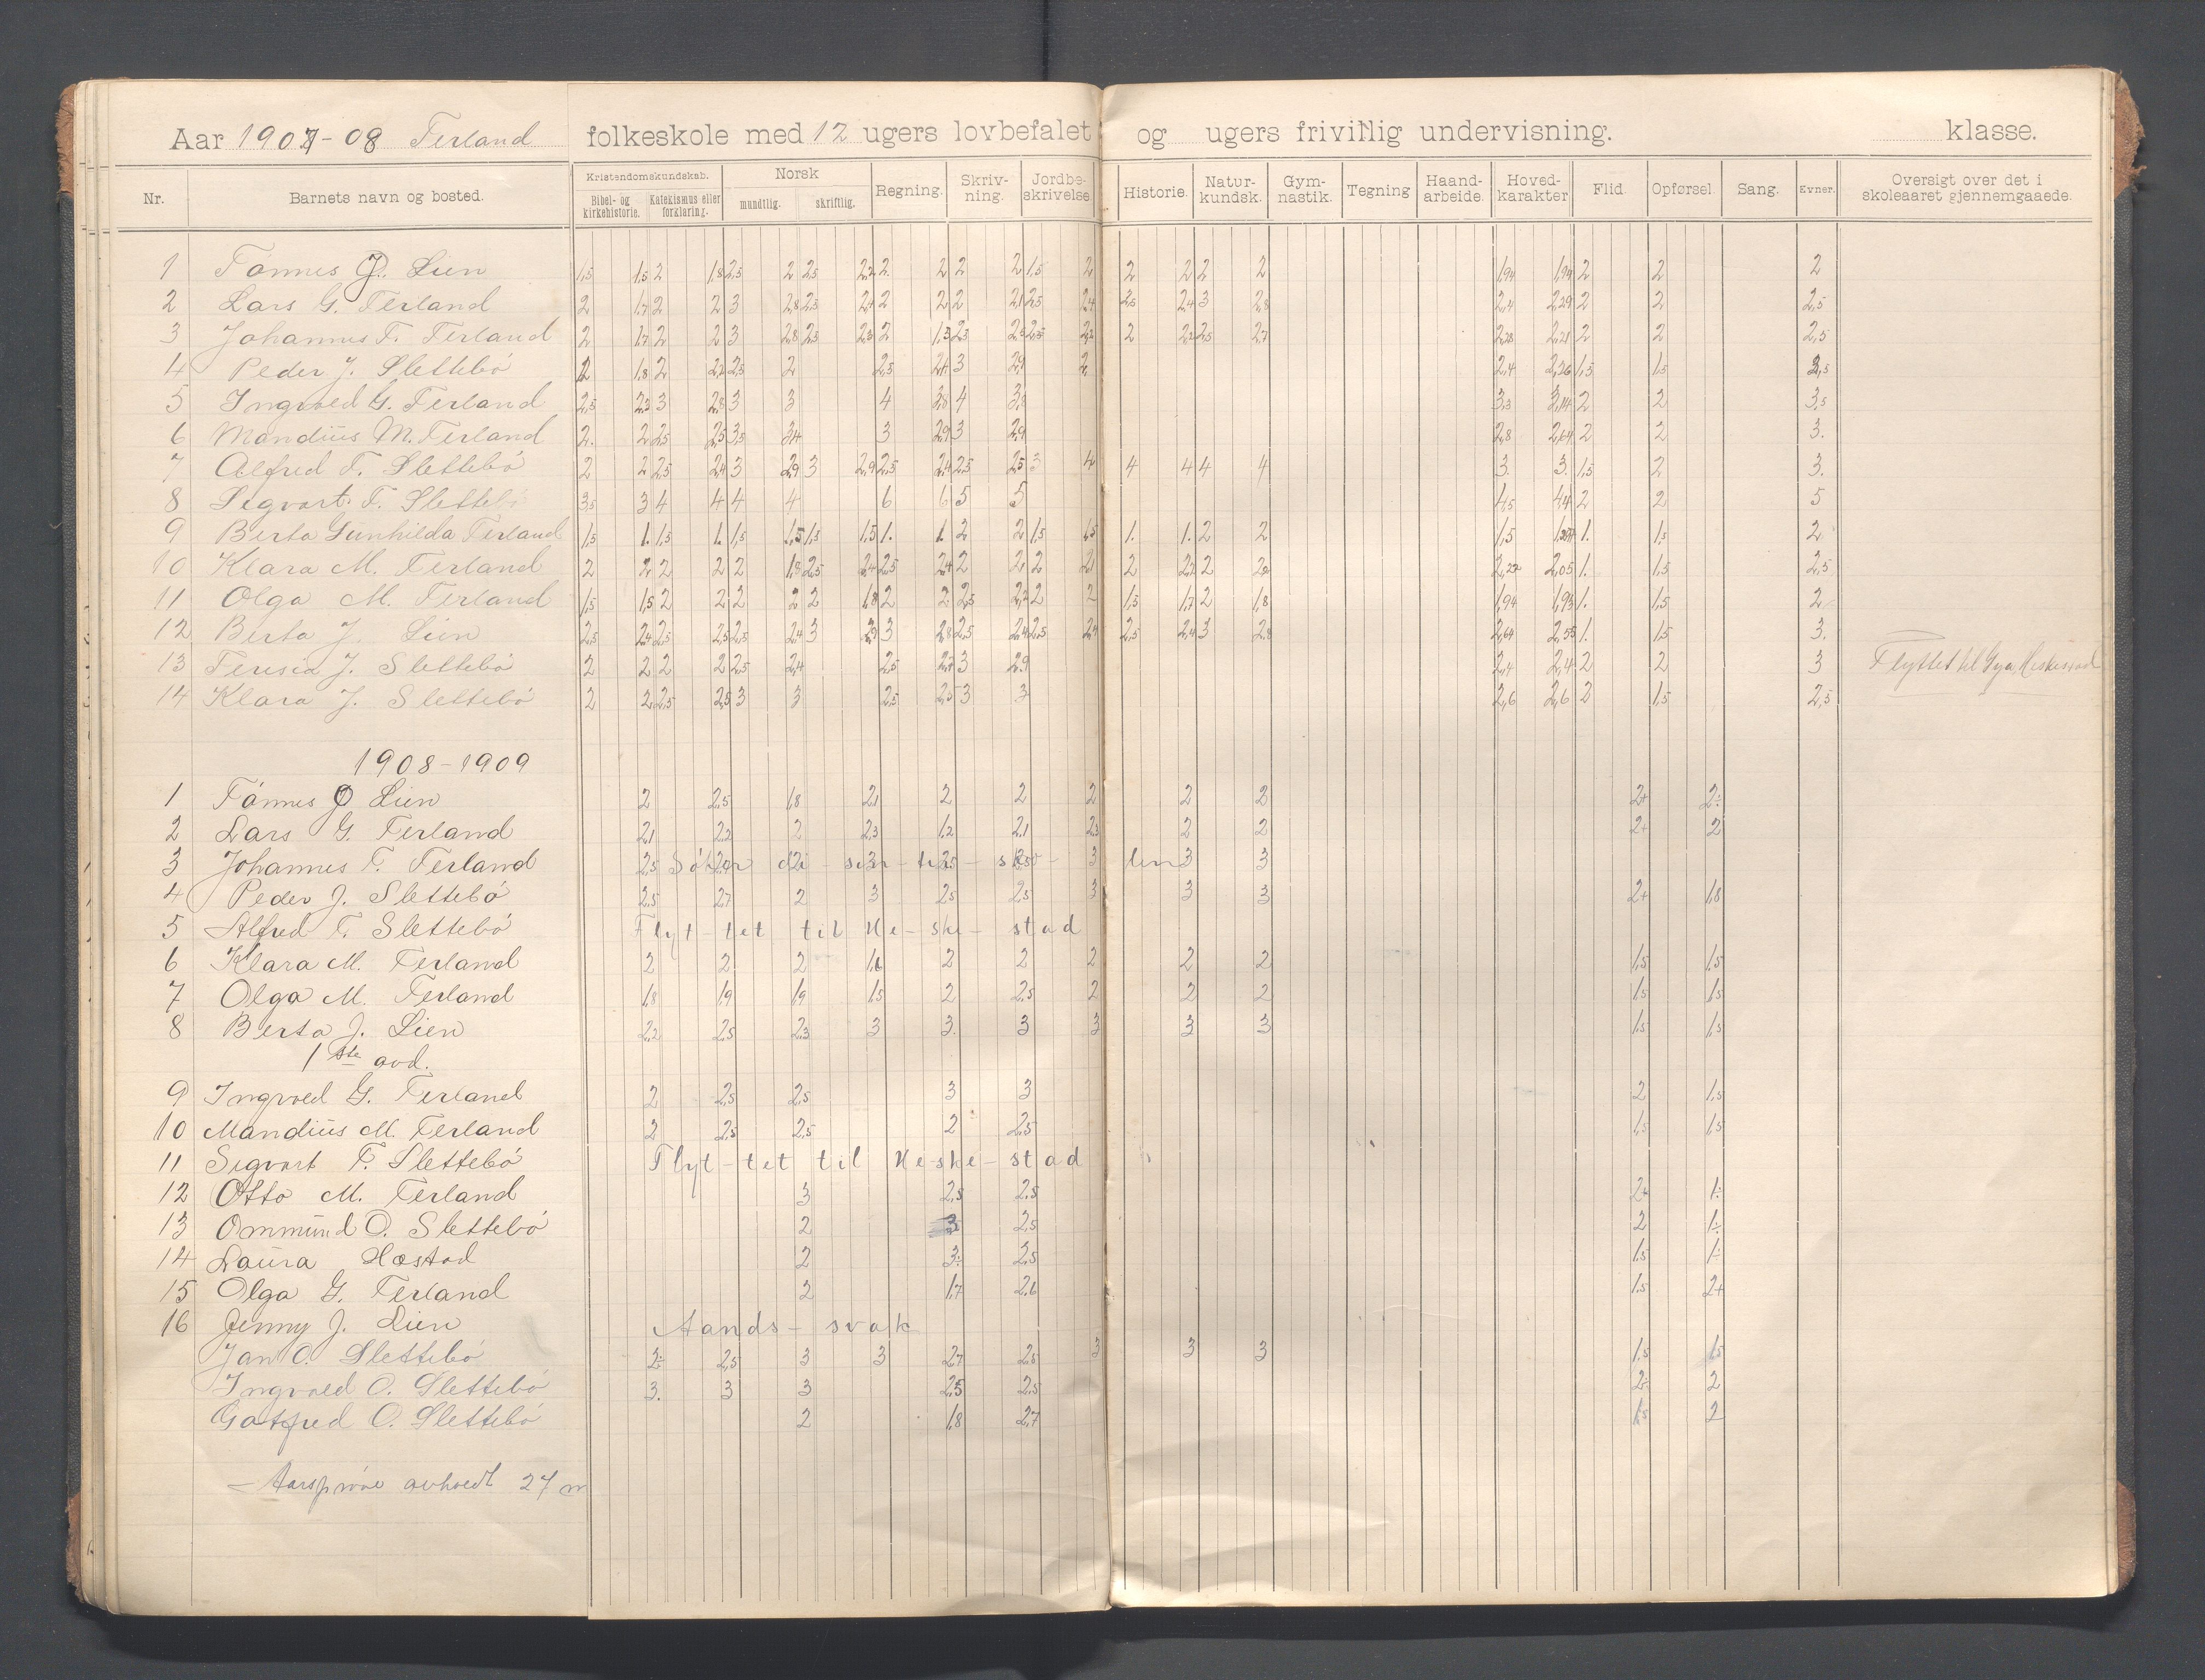 Aar 1907-08 Terland folkeskole med 12 ugers lovbefalet og ugers frivillig undervisning. klasse.
Nr. Barnets navn og bosted. Kristendomskundskab. Bibel- og kirkehistorie. Katekismus eller forklaring. Norsk mundtlig. skriftlig. Regning. Skrivning. Jordbeskrivelse. Historie. Naturkundsk. Gymnastik. Tegning Haandarbeide. Hovedkarakter Flid Opførsel. Sang. Evner. Oversigt over det i skoleaaret gjennemgaaede.
1 Tönnes J. Lien 1,5 1,5 2 1,8 2,5 2 2,5 2,2 2 2 2 2 1,5 2 2 2 2 2 1,94 1,94 2 2 2
2 Lars G. Terland 2 1,7 2 2 3 2,8 2,5 2,4 2 2 2 2,1 2,5 2,4 2,5 2,4 3 2,8 2,4 2,29 2 2 2,5
3 Johannes T. Terland 2 1,7 2 2 3 2,8 2,5 2,3 2 1,3 2,5 2,5 2,5 2,2 2 2,2 2,5 2,7 2,28 2,21 2 2 2,5
4 Peder J. Slettebö 2 1,8 2 2,2 2,5 2 2,5 2,4 3 2,9 2 2,4 2,26 1,5 1,5 2,5
5 Ingvold G. Terland 2,5 2,3 3 2,8 3 3 4 3,8 4 3,8 3,3 3,14 2 2 3,5
6 Mandius M. Terland 2. 2 2,5 2,5 3,5 3,4 3 2,9 3 2,9 2,8 2,64 2 2 3.
7 Alfred T. Slettebö 2 2 2,5 2,4 3 2,9 3 2,9 2,5 2,4 2,5 2,5 3 4 4 4 4 4 3. 3. 1,5 2 3.
8 Segvart T. Slettebö 3,5 3 4 4 4 4 6 6 5 5 4,5 4,4 2 2 5
9 Berta Gunhilda Terland 1,5 1. 1,5 1. 1,5 1,5 1,5 1,5 1. 1. 2 2 1,5 1,5 1. 1. 2 2 1,5 1. 1,5 2
10 Klara M. Terland 2 2 2 2 2 1,8 2,5 2,4 2,5 2,4 2 2,1 2 2,1 2 2,2 2 2,2 2,22 2,05 1. 1,5 2,5
11 Olga M. Terland 1,5 1,5 2 2 2 2 2 1,8 2 2 2,5 2,2 2 2 1,5 1,7 2 1,8 1,94 1,93 1. 1,5 2
12 Berta J. Lien 2,5 2,4 2,5 2,5 2,5 2,4 3 2,9 3 2,8 2,5 2,4 2,5 2,4 2,5 2,4 3 2,8 2,64 2,55 1. 1,5 3.
13 Teresia J. Slettebö 2 2 2 2 2,5 2,4 2,5 2,2 3 2,9 2,4 2,4 2 2 3 Flyttet til Gya, Heskestad
14 Klara J. Slettebö 2 2 2,5 2,5 3 3 2,5 2,5 3 3 2,6 2,6 2 1,5 2,5
1908-1909
1 Tönnes J Lien 2 2,5 1,8 2,1 2 2 2 2 2 2+ 2÷
2 Lars G. Terland 2,1 2,2 2 2,3 1,2 2,1 2,3 2 2 2+ 2
3 Johannes T. Terland 2,5 3 3 3
4 Peder J. Slettebö 2,5 2,7 2 3 2,5 2,5 3 3 3 2+ 1,8
5 Alfred T. Slettebö Flyt-tet til He-ske-stad
6 Klara M. Terland 2 2 2 1,6 2 2 2 2 2 1,5 1,5
7 Olga M. Terland 1,8 1,9 1,9 1,5 2 2,5 2 2 2 1,5 1,5
8 Berta J. Lien 2,2 2,5 2,3 3 3. 3 3 3 3 1,5 1,5
1ste avd.
9 Ingvold G. Terland 2 2,5 2,5 3 3 2 1,5
10 Mandius M. Terland 2 2,5 2,5 2 2,5 1,5 1,5
11 Segvart T. Slettebö Flyt-tet til He-ske-stad
12 Otto M. Terland 3 2,5 2,5 2+ 1÷
13 Ommund O. Slettebö 2 3 2,5 2 1÷
14 Laura Hæstad 2 3÷ 2,5 1,5 1÷
15 Olga G. Terland 2 1,7 2,6 1,5 2+
16 Jenny J. Lien Aands-svak
Jan O. Slettebö 2÷ 2,5 3 3 2,7 2,8 3 3 3 1,5 1,5
Ingvald O. Slettebö 3. 3 3 2,5 2,5 2÷ 2
Gotfred O. Slettebö 2 1,8 2,7 1,5 2
- Aarspröve avholdt 27 m